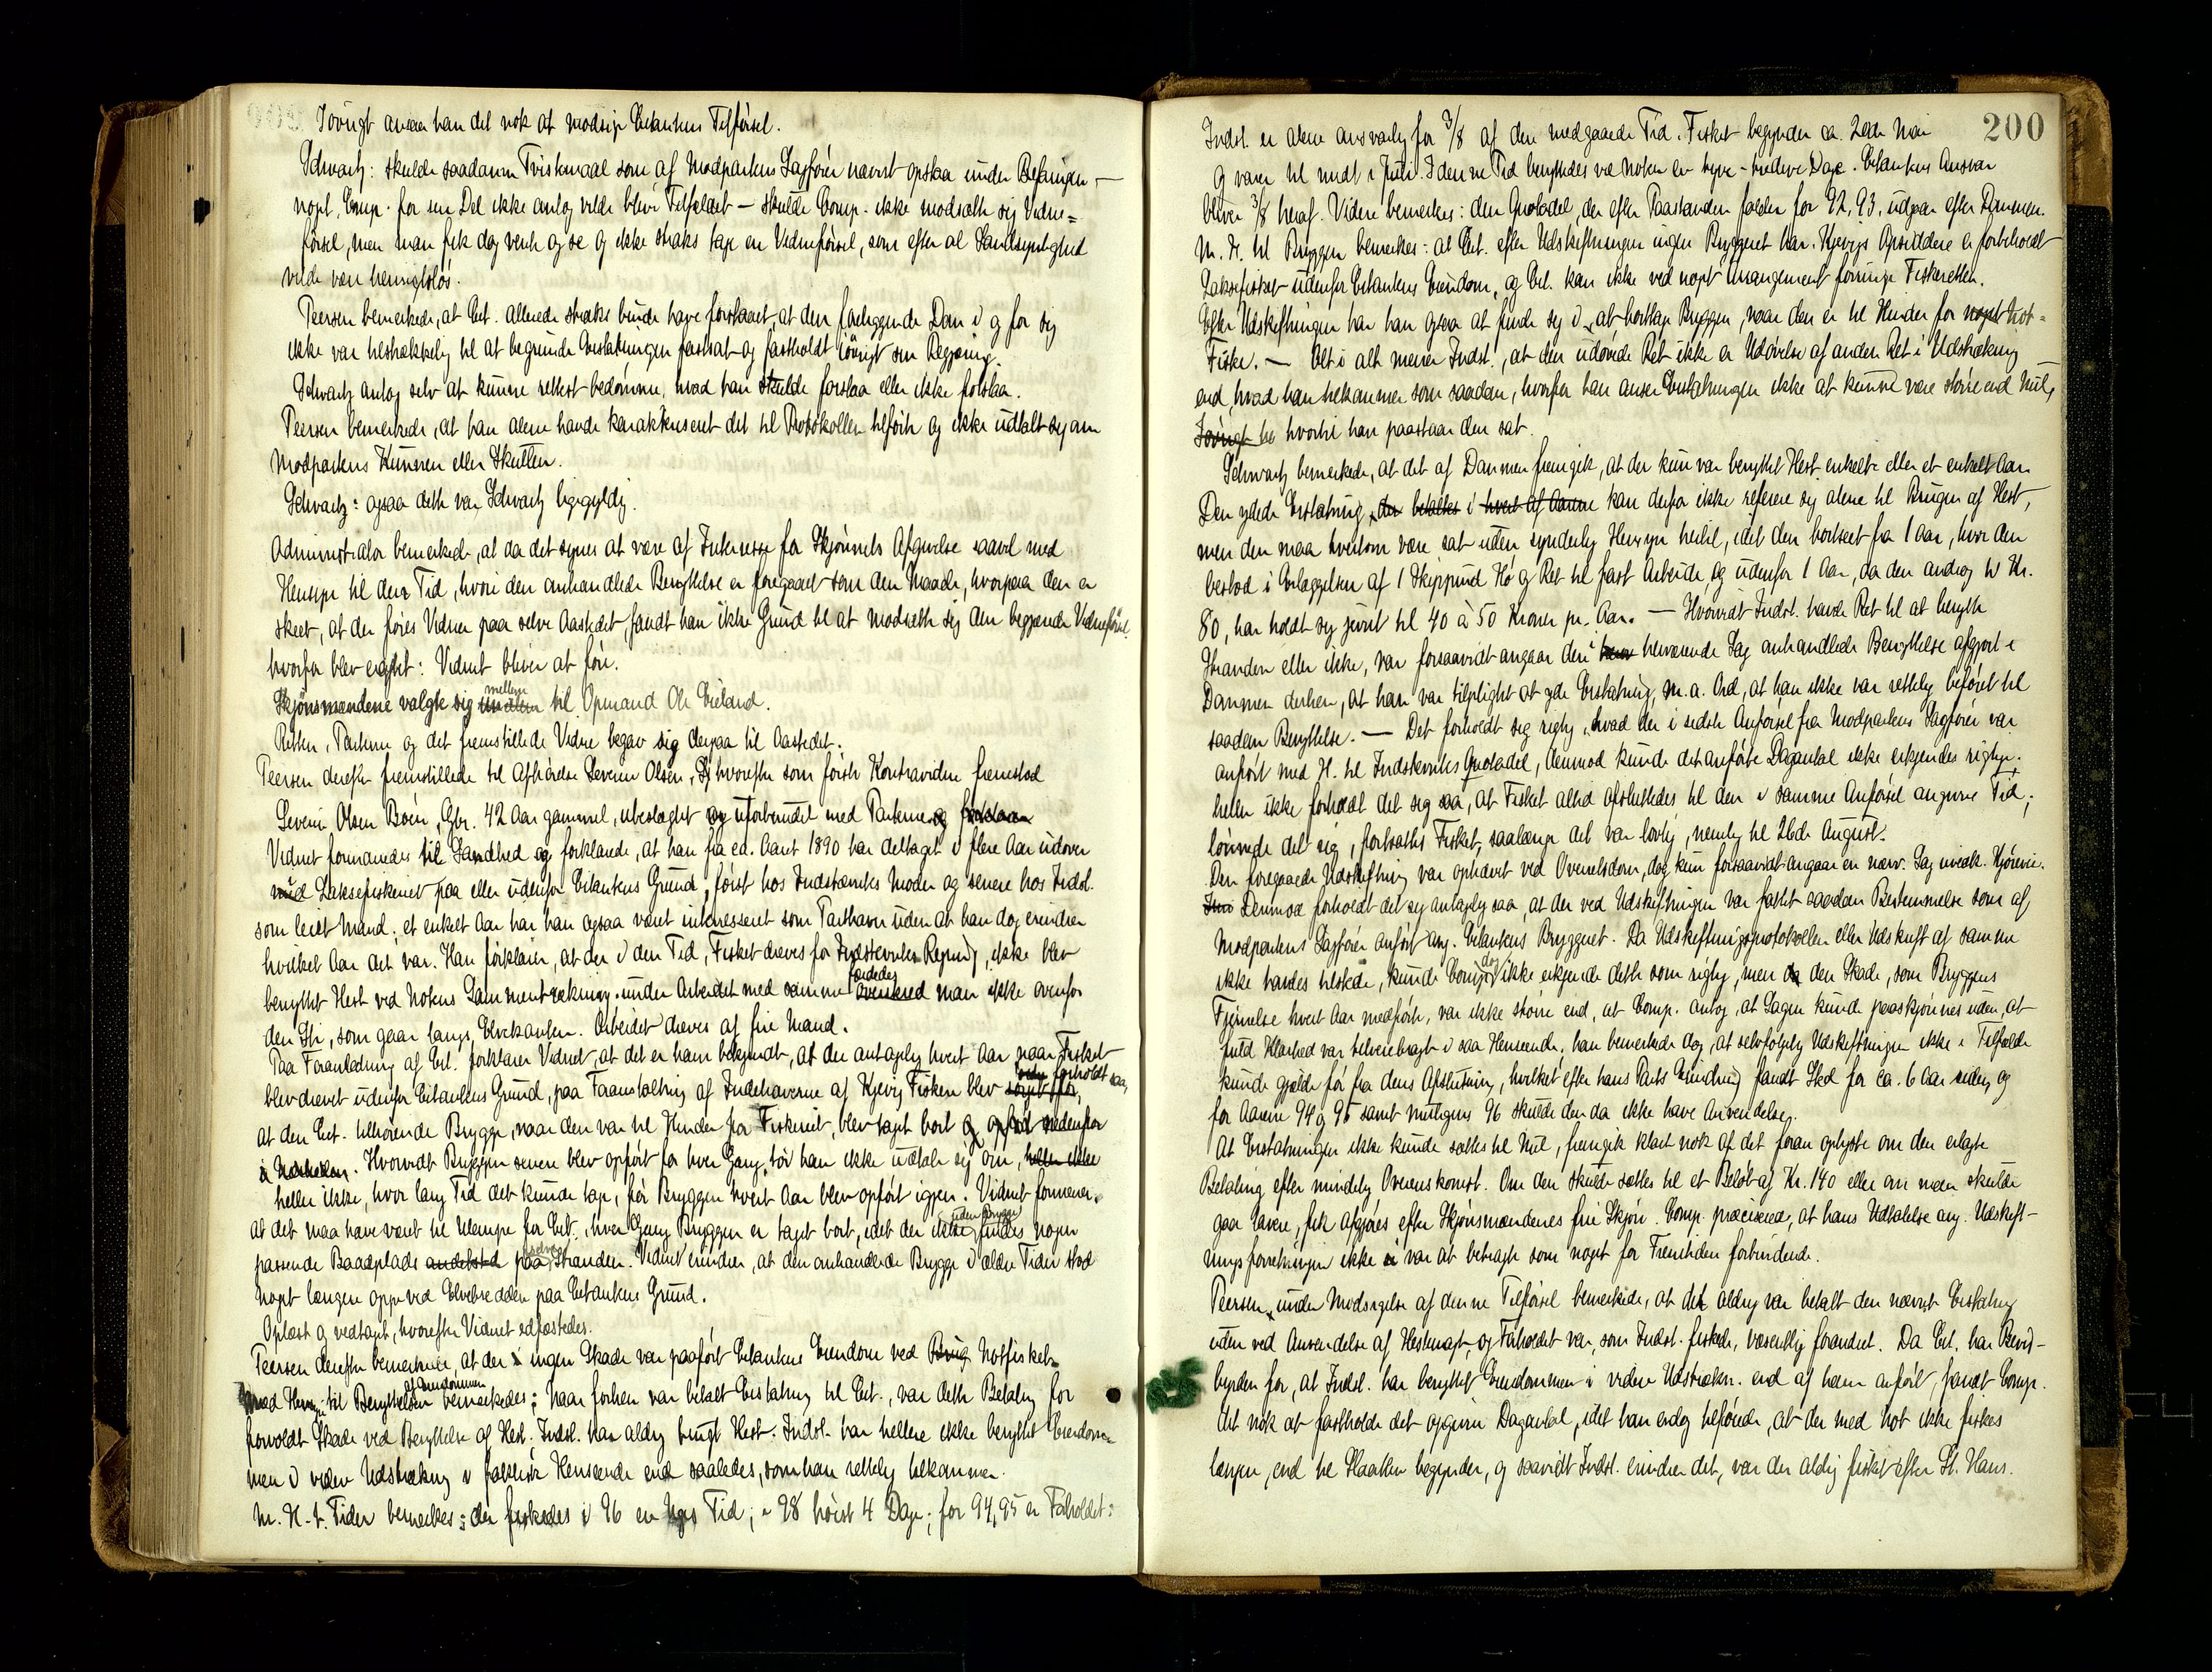 Iøvrigt ansaa han det nok at modsige Citantens Tilførsel.
Schwartz: skulde saadanne Tvistemaal som af Modpartens Sagfører nævnt opstaa under Befaringen –
noget, Comp. for sin Del ikke antog vilde blive Tilfældet – skulde Comp. ikke modsætte sig Vidne=
førsel, men man fik dog vente og se og ikke straks tage en Vidneførsel, som efter al Sandsynlighed
vilde være hensigtsløs.
Peersen bemerkede, at Cit. allerede straks burde have forstaaet, at den foreliggende Dom i og for sig
ikke var tilstrækkelig til at begrunde Erstatningen fastsat og fastholdt iøvrigt sin Begjæring.
Schwartz antog selv at kunne rettest bedømme, hvad han skulde forstaa eller ikke forstaa.
Peersen bemerkede, at han alene havde karakteriseret det til Protokollen tilførte og ikke udtalt sig om
Modpartens Kunnen eller Skullen.
Schwartz: ogsaa dette var Schwartz ligegyldig.
Administrator bemerkede, at da det synes at være af Interesse for Skjønnets Afgivelse saavel med
Hensyn til den Tid, hvori den omhandlede Benyttelse er foregaaet som den Maade, hvorpaa den er
skeet, at der føres Vidner paa selve Aastedet, fandt han ikke Grund til at modsætte sig den begjærede Vidneførsel,
hvorfor blev eragtet: Vidnet bliver at føre.
Skjønsmændene valgte sig mellem til Opmand Ole Eieland.
Retten, Parterne og det fremstillede Vidne begav sig derpaa til Aastedet.
Peersen derefter fremstillede til Afhørelse Severin Olsen, hvorefter som første Kontravidne fremstod
Severin Olsen Boen, Gbr. 42 Aar gammel, ubeslægtet og uforbundet med Parterne
Vidnet formanedes til Sandhed og forklarede, at han fra ca. Aaret 1890 har deltaget i flere Aar udover
Laksefiskeriet paa eller udenfor Citantens Grund, først hos Indstævntes Moder og senere hos Indst.
som leiet Mand; et enkelt Aar har han ogsaa været interesseret som Parthaver uden at han dog erindrer
hvilket Aar det var. Han forklarer, at der i den Tid, Fisket dreves for Indstevntes Regning, ikke blev
benyttet Hest ved Notens Sammentrækning. under Arbeidet med samme færdedes man ikke ovenfor
den Sti, som gaar langs Elvekanten. Arbeidet dreves af fire Mand.
Paa Foranledning af Cit. forklarer Vidnet, at det er ham bekjendt, at der antagelig hvert Aar naar Fisket
blev drevet udenfor Citantens Grund, paa Foranstaltning af Indehaverne af Kjevig Fiskeri blev forholdt saa,
at den Cit. tilhørende Brygge, naar den var til Hinder for Fiskeriet, blev taget bort
Hvorvidt Bryggen senere blev opført for hver Gang, tør han ikke udtale sig om,
heller ikke, hvor lang Tid det kunde tage, før Bryggen hvert Aar blev opført igjen. Vidnet formener,
at det maa have været til Ulempe for Cit., hver Gang Bryggen er taget bort, idet der uden Bryggen ikke findes nogen
passende Baadplads paa Stranden. Vidnet erindrer, at den omhandlede Brygge i ældre Tider stod
noget længere oppe ved Elvebredden paa Citantens Grund.
Oplæst og vedtaget, hvorefter Vidnet edfæstedes.
Peersen derefter bemerkede, at der ingen Skade var paaført Citantens Eiendom ved Notfisket.
Med Hensyn til Benyttelsen af Eiendommen bemerkedes: Naar forhen var betalt Erstatning til Cit., var dette Betaling for
forvoldt Skade ved Benyttelse af Hest. Indst. har aldrig brugt Hest. Indst. har hellere ikke benyttet Eiendom=
men i videre Udstrækning i faktisk Henseende end saaledes, som han rettelig tilkommer.
M. H. t. Tiden bemerkes: der fiskedes i 96 en Uges Tid; i 98 høist 4 Dage; for 94, 95 er Forholdet:
200
Indst. er alene ansvarlig for 3/8 af den medgaaede Tid. Fisket begynder ca. 20de Mai
og varer til midt i Juli. I denne Tid benyttedes ved Noten en tyve-tredive Dage. Citantens Ansvar
bliver 3/8 heraf. Videre bemerkes: den Quotadel, der efter Paastanden falder for 92, 93, udgaar efter Dommen.
M. H. til Bryggen bemerkes: at Cit. efter Udskiftningen ingen Bryggeret har. Kjevigs Opsiddere er forbeholdt
Laksefisket udenfor Citantens Eiendom, og Cit. kan ikke ved noget Arrangement forringe Fiskeretten.
Efter Udskiftningen har han ogsaa at finde sig i at borttage Bryggen, naar den er til Hinder for Not=
Fiske. – Alt i alt mener Indst., at den udøvede Ret ikke er Udøvelse af anden Ret i Udstrækning
end, hvad han tilkommer som saadan, hvorfor han anser Erstatningen ikke at kunne være større end Nul,
hvortil han paastaar den sat.
Schwartz bemerkede, at det af Dommen fremgik, at der kun var benyttet Hest enkelte eller et enkelt Aar.
Den ydede Erstatning kan derfor ikke referere sig alene til Brugen af Hest,
men den maa hvertom være sat uden synderlig Hensyn hertil, idet den bortseet fra 1 Aar, hvor den
bestod i Erlæggelsen af 1 Skippund Hø og Ret til fast Arbeide, og udenfor 1 Aar, da den androg til Kr.
80, har holdt sig jevnt til 40 à 50 Kroner pr. Aar. – Hvorvidt Indst. havde Ret til at benytte
Stranden eller ikke, var forsaavidt angaar den i herværende Sag omhandlede Benyttelse afgjort i
Dommen derhen, at han var tilpligtet at yde Erstatning, m. a. Ord, at han ikke var rettelig beføiet til
saadan Benyttelse. – Det forholdt sig rigtig, hvad der i sidste Anførsel fra Modpartens Sagfører var
anført med H. til Indstevntes Quotadel, derimod kunde det anførte Dagantal ikke erkjendes rigtig.
heller ikke forholdt det sig saa, at Fisket altid afsluttedes til den i samme Anførsel angivne Tid;
lønnede det sig, fortsattes Fisket, saalænge det var lovlig, nemlig til 26de August.
Den foregaaede Udskiftning var ophævet ved Overretsdom, dog kun forsaavidt angaar en nærv. Sag uvedk.
Derimod forholdt det sig antagelig saa, at der ved Udskiftningen var fattet saadan Bestemmelse som af
Modpartens Sagfører anført ang. Citantens Bryggeret. Da Udskiftningsprotokollen eller Udskrift af samme
ikke havdes tilstede, kunde Comp. dog ikke erkjende dette som rigtig, men den Skade, som Bryggens
Fjernelse hvert Aar medførte, var ikke større end, at Comp. antog, at Sagen kunde paaskjønnes uden, at
fuld Klarhed var tilveiebragt i saa Henseende. han bemerkede dog, at selvfølgelig Udskiftningen ikke i Tilfælde
kunde gjælde før fra dens Afslutning, hvilket efter hans Parts Erindring fandt Sted for ca. 6 Aar siden, og
for Aarene 94 og 95 samt muligens 96 skulde den da ikke have Anvendelse.
At Erstatningen ikke kunde sættes til Nul, fremgik klart nok af det foran oplyste om den erlagte
Betaling efter mindelig Overenskomst. Om den skulde sættes til et Beløb af Kr. 140 eller om man skulde
gaa lavere, fik afgjøres efter Skjønsmændenes frie Skjøn. Comp. præciserede, at hans Udtalelse ang. Udskift-
ningsforretningen ikke var at betragte som noget for Fremtiden forbindende.
Peersen, under Modsigelse af denne Tilførsel bemerkede, at det aldrig var betalt den nævnte Erstatning
uden ved Anvendelse af Hestemagt, og Forholdet var, som Indst. fiskede, væsentlig forandret. Da Cit. har Bevis-
byrden for, at Indst. har benyttet Eiendommen i videre Udstrækn. end af ham anført, fandt Comp.
det nok at fastholde det opgivne Dagantal, idet han endog tilføiede, at der med Not ikke fiskes
længer, end til Slaatten begynder, og saavidt Indst. erindrer det, var der aldrig fisket efter St. Hans.